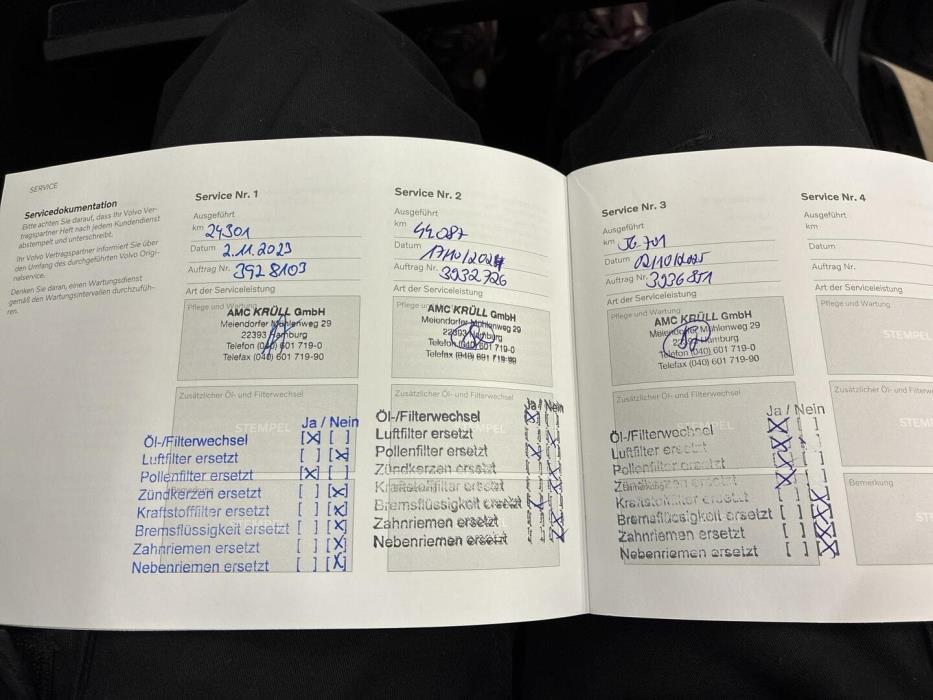 SERVICE
Servicedokumentation
Bitte achten Sie darauf, dass Ihr Volvo Ver-
tragspartner Heft nach jedem Kundendienst
abstempelt und unterschreibt.
Ihr Volvo Vertragspartner informiert Sie über
den Umfang des durchgeführten Volvo Origi-
nalservice.
Denken Sie daran, einen Wartungsdienst
gemäß den Wartungsintervallen durchzufüh-
ren.
Service Nr. 1
Ausgeführt
km 24301
Datum 2.11.2023
Auftrag Nr. 3928103
Art der Serviceleistung
Pflege und Wartung
AMC KRÜLL GmbH
Meiendorfer Mühlenweg 29
22393 Hamburg
Telefon (040) 601 719-0
Telefax (040) 601 719-90
Zusätzlicher Öl- und Filterwechsel
STEMPEL
Ja / Nein
Öl-/Filterwechsel [X] [ ]
Luftfilter ersetzt [ ] [X]
Pollenfilter ersetzt [X] [ ]
Zündkerzen ersetzt [ ] [X]
Kraftstofffilter ersetzt [ ] [X]
Bremsflüssigkeit ersetzt [ ] [X]
Zahnriemen ersetzt [ ] [X]
Nebenriemen ersetzt [ ] [X]
Service Nr. 2
Ausgeführt
km 44087
Datum 17/10/2024
Auftrag Nr. 3932726
Art der Serviceleistung
Pflege und Wartung
AMC KRÜLL GmbH
Meiendorfer Mühlenweg 29
22393 Hamburg
Telefon (040) 601 719-0
Telefax (040) 601 719-90
Zusätzlicher Öl- und Filterwechsel
Ja / Nein
Öl-/Filterwechsel
Luftfilter ersetzt
Pollenfilter ersetzt
Zündkerzen ersetzt
Kraftstofffilter ersetzt
Bremsflüssigkeit ersetzt
Zahnriemen ersetzt
Nebenriemen ersetzt
Service Nr. 3
Ausgeführt
km 56.701
Datum 02/10/2025
Auftrag Nr. 3936851
Art der Serviceleistung
Pflege und Wartung
AMC KRÜLL GmbH
Meiendorfer Mühlenweg 29
22393 Hamburg
Telefon (040) 601 719-0
Telefax (040) 601 719-90
Zusätzlicher Öl- und Filterwechsel
Ja / Nein
Öl-/Filterwechsel
Luftfilter ersetzt
Pollenfilter ersetzt
Zündkerzen ersetzt
Kraftstofffilter ersetzt
Bremsflüssigkeit ersetzt
Zahnriemen ersetzt
Nebenriemen ersetzt
Service Nr. 4
Ausgeführt
km
Datum
Auftrag Nr.
Art der Serviceleistung
Pflege und Wartung
STEMPEL
Zusätzlicher Öl- und Filterw
STEM
Bemerkung
ST